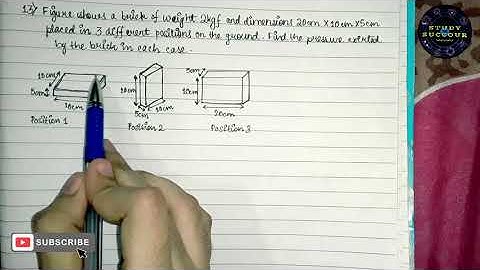 13) Figure shows a brick of weight 2kgf and dimensions 20cm x 10cm x 5cm
placed in 3 different positions on the ground. Find the pressure exerted
by the brick in each case.
10cm
5cm
20cm
Position 1
20cm
5cm
10cm
Position 2
5cm
10cm
20cm
Position 3
STUDY
SUCCOUR
SUBSCRIBE